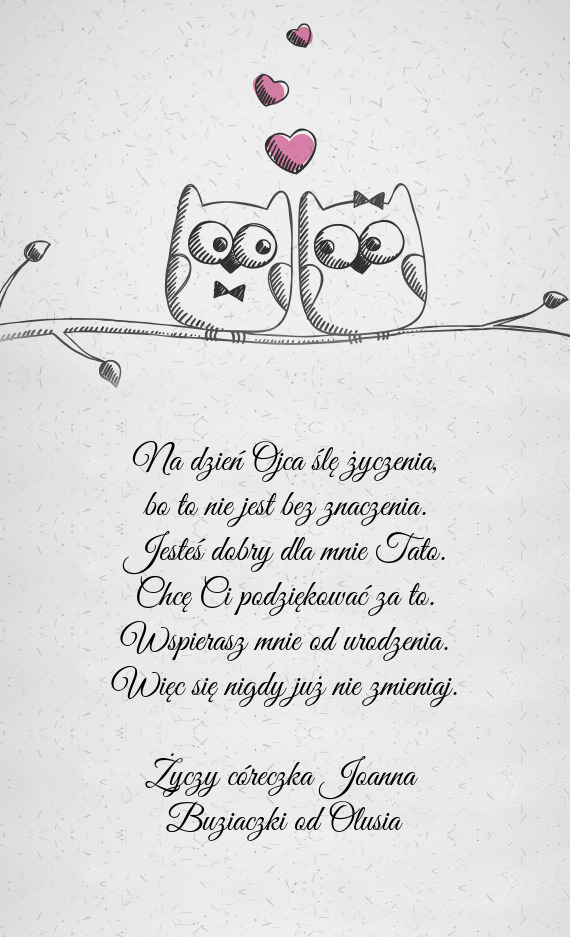 Na dzień Ojca ślę życzenia,
bo to nie jest bez znaczenia.
Jesteś dobry dla mnie Tato.
Chcę Ci podziękować za to.
Wspierasz mnie od urodzenia.
Więc się nigdy już nie zmieniaj.
Życzy córeczka Joanna
Buziaczki od Olusia